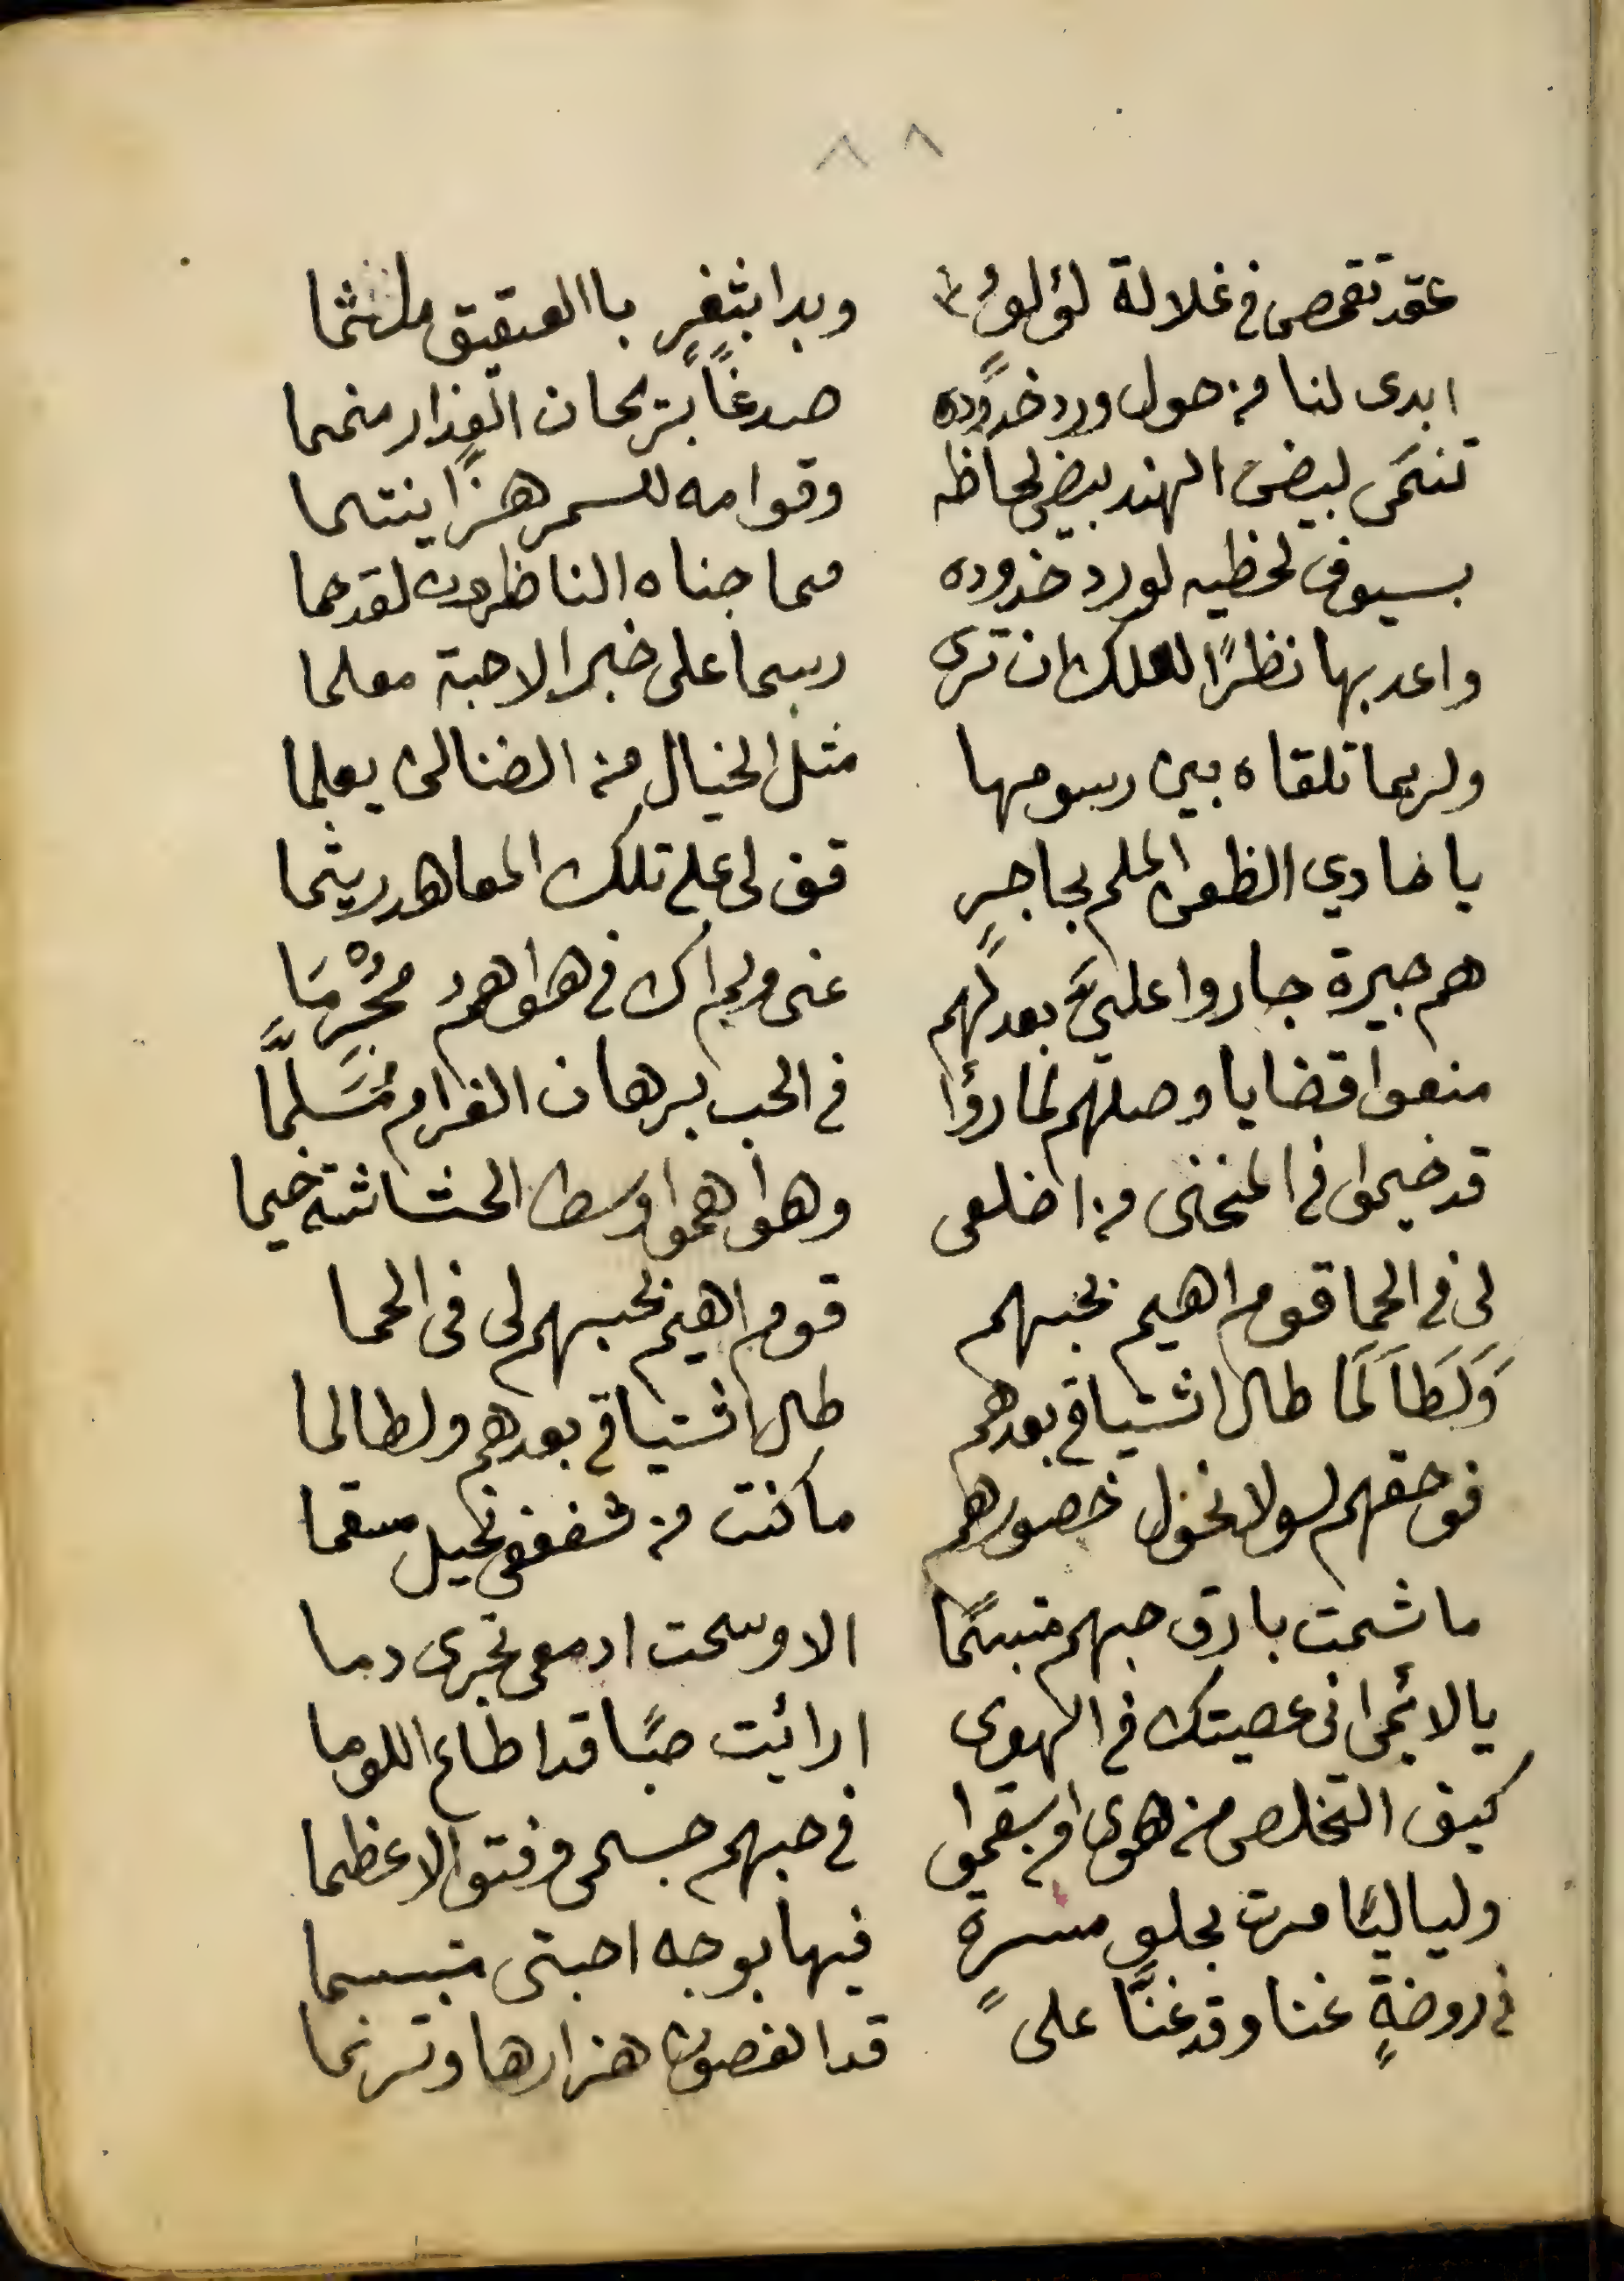 ٨٨
عقد تقمص في غلالة لؤلؤ وبدا بثغرٍ باالعقيق ملثما
ابدى لنا من حول ورد خدوده صدغاً بريحان العذار منمما
تنتمى لبيض الهند بيض لحاظه وقوامه للسمر هزاً ينتما
بسيوف لحظيه لورد خدوده مما جناه الناظرون لقد حما
واعد بها نظرًا لعلك ان ترى رسما على خبر الاحبة معلما
ولربما تلقاه بين رسومها مثل الخيال من الضنا لن يعلما
يا حادي الظعن الملم بحاجرٍ قف لى على تلك المعاهد ريثما
هم جيرة جاروا عليَّ بعدلهم عنى ولم اك في هواهم مُجْرِمَا
منعوا قضايا وصلهم لما رؤا في الحب برهان الغرام مُسَلَّمًا
قد خيموا في المنحنى من اضلعى وهواهموا وسط الحشاشة خيما
لى في الحما قوم اهيم بحبهم قوم اهيم بحبهم لى فى الحما
وَلَطَاَلَمَا طال اشتياقي بعدهم طال اشتياقي بعدهم ولطالما
فوحقهم لولا نحول خصورهم ما كنت من شغفى نحيل مسقما
ما شمت بارق حبهم متبسمًا الا وسحت ادمعى تجرى دما
يا لائمى انى عصيتك في الهوى ارائيت صبًا قد اطاع اللوما
كيف التخلص من هوى اسقموا في حبهم جسمى وفتوا الاعظما
ولياليًا مرت بحلو مسرةٍ فيها بوجه احبتى متبسما
في روضةٍ غنا وقد غنَّا على قد الغصون هزارها وترنما